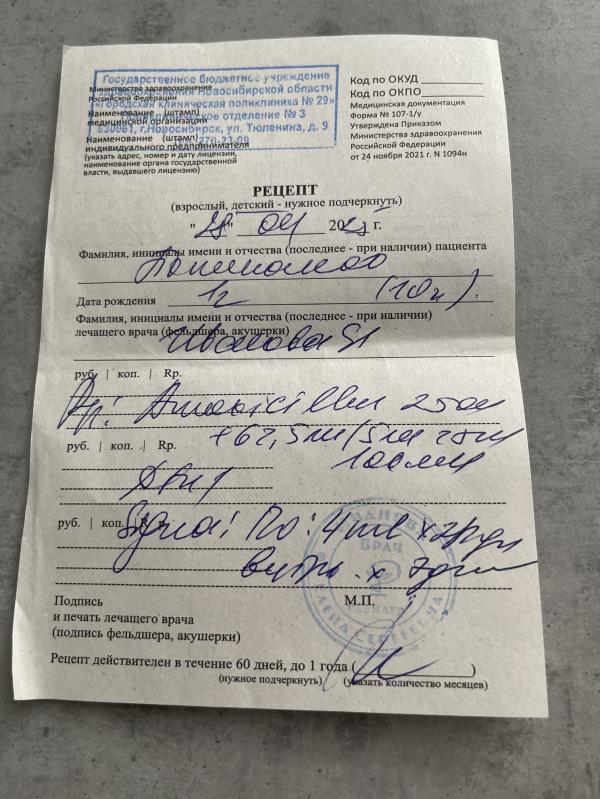 Государственное бюджетное учреждение
здравоохранения Новосибирской области
«Городская клиническая поликлиника № 29»
отделение № 3
630961, г.Новосибирск, ул. Тюленина, д. 9
Министерство здравоохранения
Российской Федерации
Наименование (штамп)
медицинской организации
Наименование (штамп)
индивидуального предпринимателя
(указать адрес, номер и дату лицензии,
наименование органа государственной
власти, выдавшего лицензию)
Код по ОКУД
Код по ОКПО
Медицинская документация
Форма № 107-1/у
Утверждена Приказом
Министерства здравоохранения
Российской Федерации
от 24 ноября 2021 г. N 1094н
РЕЦЕПТ
(взрослый, детский - нужное подчеркнуть)
" " 04 20 г.
Фамилия, инициалы имени и отчества (последнее - при наличии) пациента
Дата рождения 1г
Фамилия, инициалы имени и отчества (последнее - при наличии)
лечащего врача (фельдшера, акушерки)
Иванова
руб. | коп. | Rp.
Rp:
руб. | коп. | Rp.
+ 62,5
100мл
руб. | коп. | Rp.
Signa: По: 4 ml x
внутрь x 7 дней
ВРАЧ
Подпись М.П.
и печать лечащего врача
(подпись фельдшера, акушерки)
Рецепт действителен в течение 60 дней, до 1 года ( )
(нужное подчеркнуть) (указать количество месяцев)